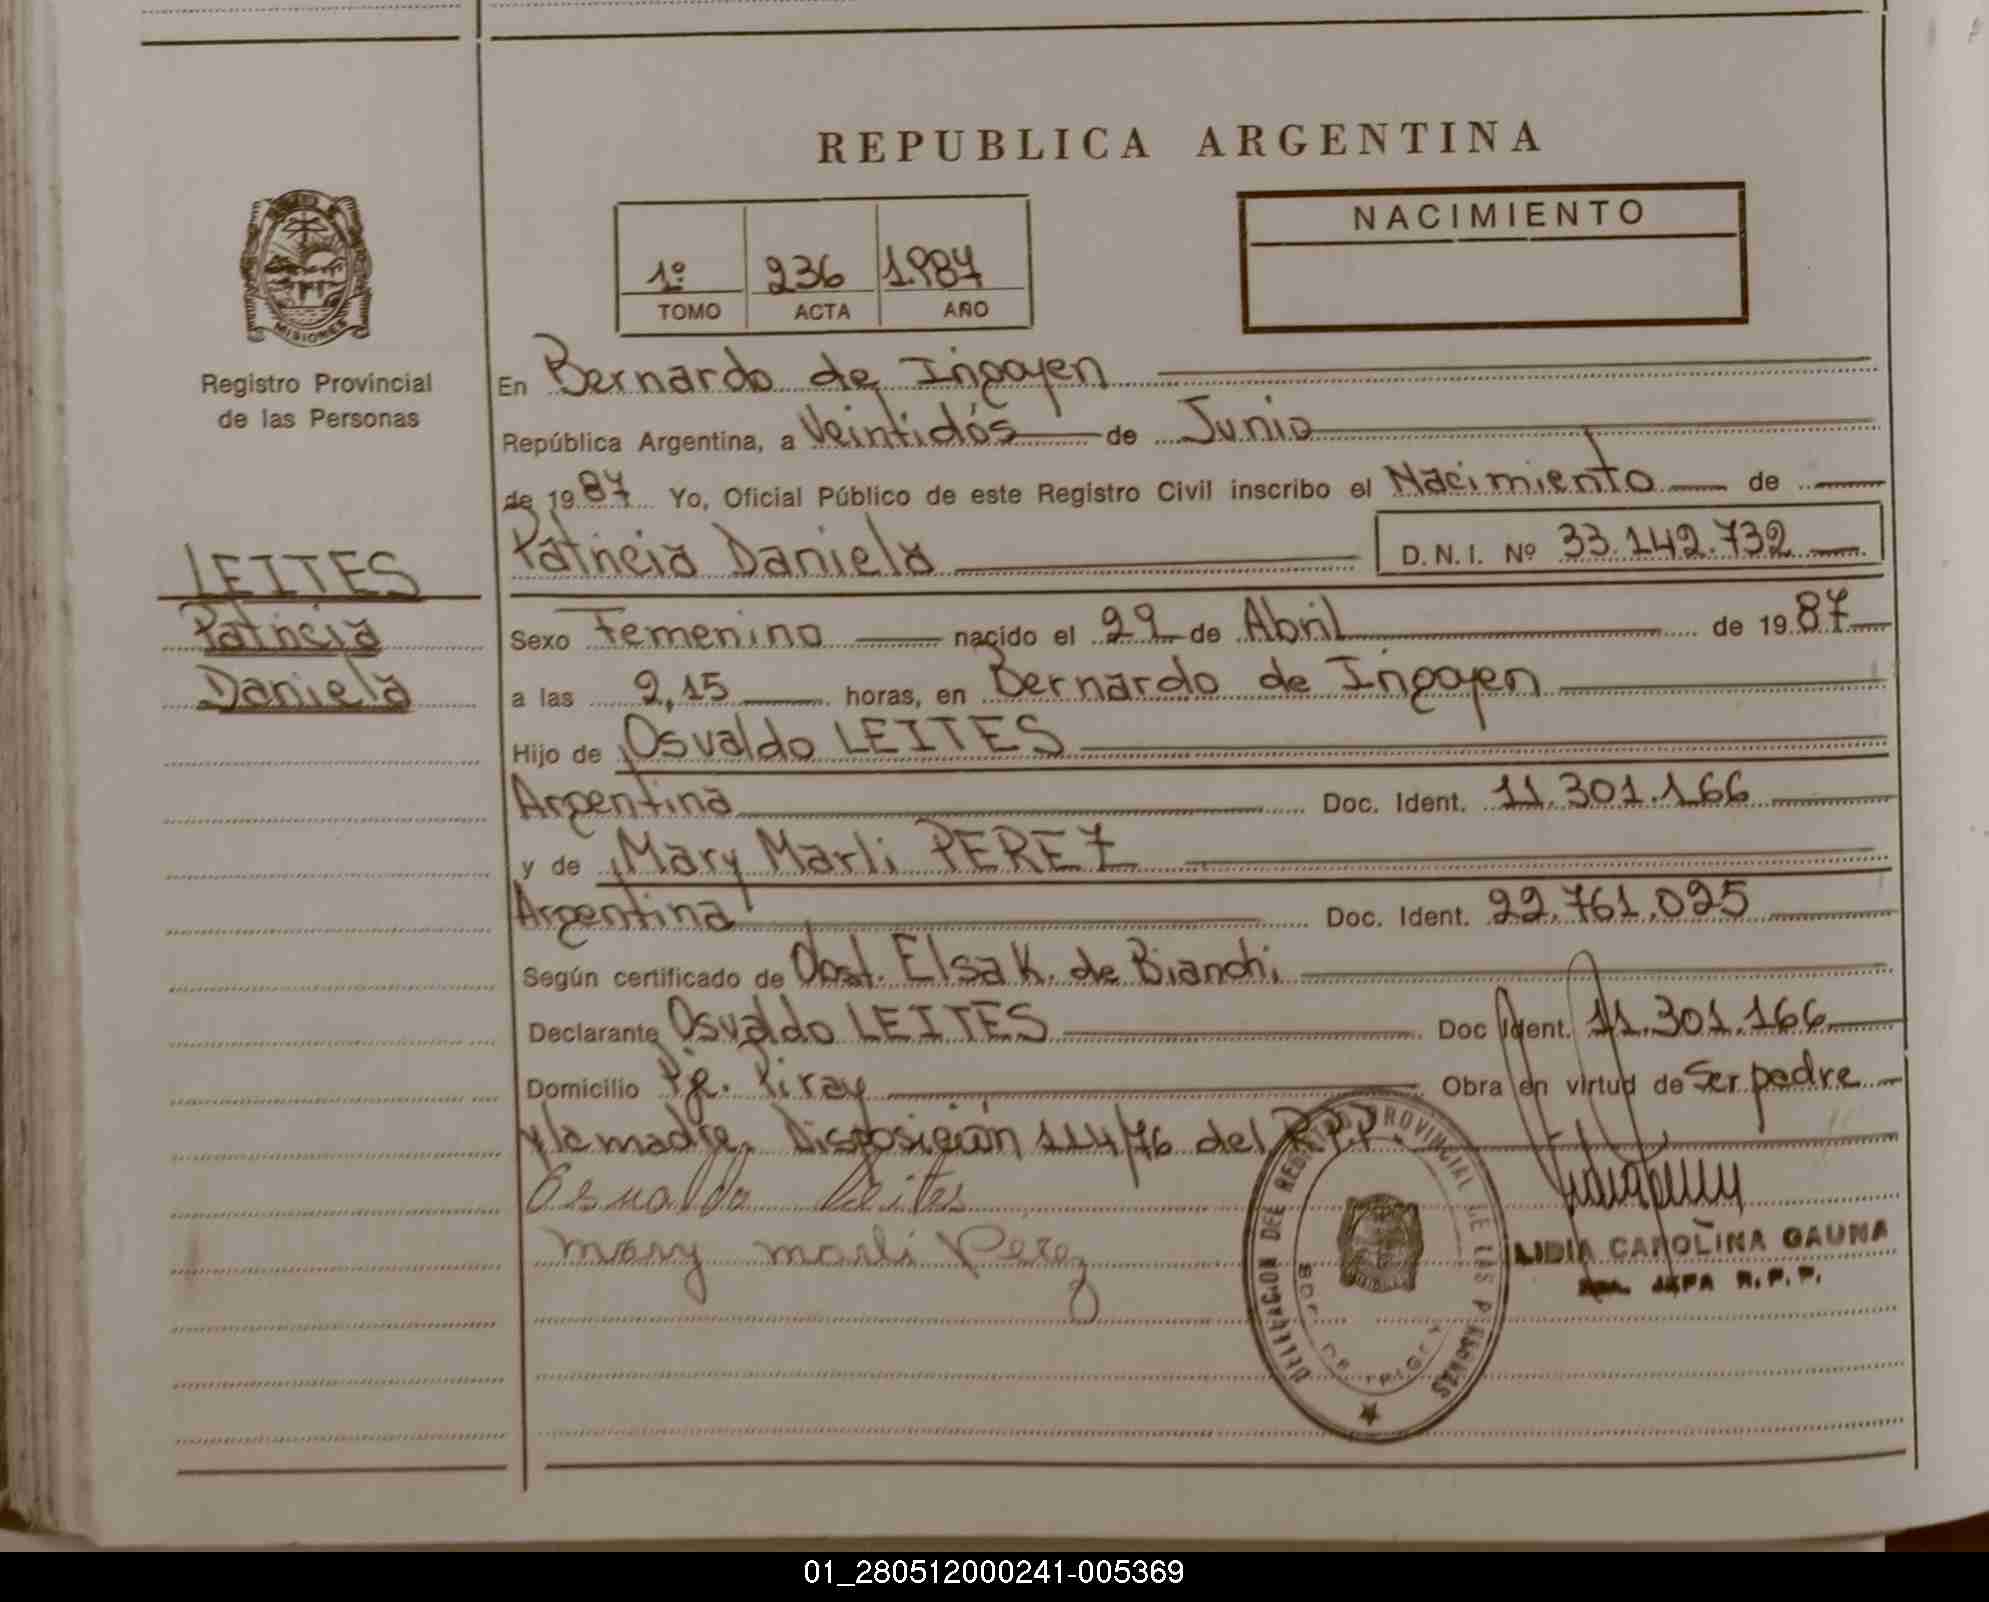 REPUBLICA ARGENTINA
NACIMIENTO
1º 236 1.987
TOMO ACTA AÑO
MISIONES
Registro Provincial
de las Personas
LEITES
Patricia
Daniela
En Bernardo de Irigoyen
República Argentina, a Veintidós de Junio
de 1987 Yo, Oficial Público de este Registro Civil inscribo el Nacimiento de
Patricia Daniela D.N.I. Nº 33.142.732
Sexo Femenino nacido el 29 de Abril de 1987
a las 2,15 horas, en Bernardo de Irigoyen
Hijo de Osvaldo LEITES
Argentina Doc. Ident. 11.301.166
y de Mary Marli PEREZ
Argentina Doc. Ident. 22.761.025
Según certificado de Obst. Elsa K. de Bianchi
Declarante Osvaldo LEITES Doc Ident. 11.301.166
Domicilio Pje. Piray Obra en virtud de Ser padre
y la madre. Disposición 114/76 del R.P.P.
Osvaldo Leites
Mary Marli Perez
DELEGACION DEL REGISTRO PROVINCIAL DE LAS PERSONAS
LIDIA CAROLINA GAUNA
JEFA R.P.P.
01_280512000241-005369